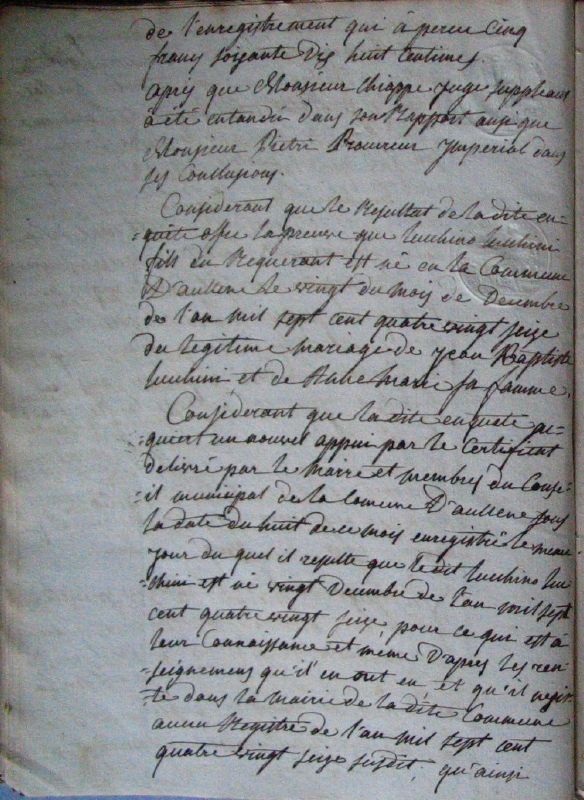 de l'enregistrement qui à perçu cinq
francs soixante Dix huit Centimes.
apres que Monsieur Chiappe juge suppleant
à été entendu dans son Rapport ainsi que
Monsieur Pietri Procureur Imperial dans
ses Conclusions.
Considerant que le Resultat de la dite en-
=quête offre la preuve que Lucchino Lucchini
fils du Requerant est né en la Commune
D'aullene le vingt du mois de Decembre
de l'an mil sept cent quatre vingt seize
du legitime mariage de jean Baptiste
Lucchini et de Marie sa famme.
Considerant que la dite enquete ac-
=quiert un nouvel appui par le Certificat
delivré par le Maire et membres du Conse-
=il municipal de la Comune D'aullene sous
la date du huit de ce mois enregistré le meme
jour du quel il resulte que le dit Lucchino Luc
chini est né vingt Decembre de l'an mil sept
cent quatre vingt seize, pour ce qui est à
leur Connaissance et même D'apres les ren-
=seignemens qu'il en ont eu et qu'il n'exis-
=te dans la mairie de la dite Commune
aucun Registre de l'an mil sept cent
quatre vingt seize susdit, qu'ainsi